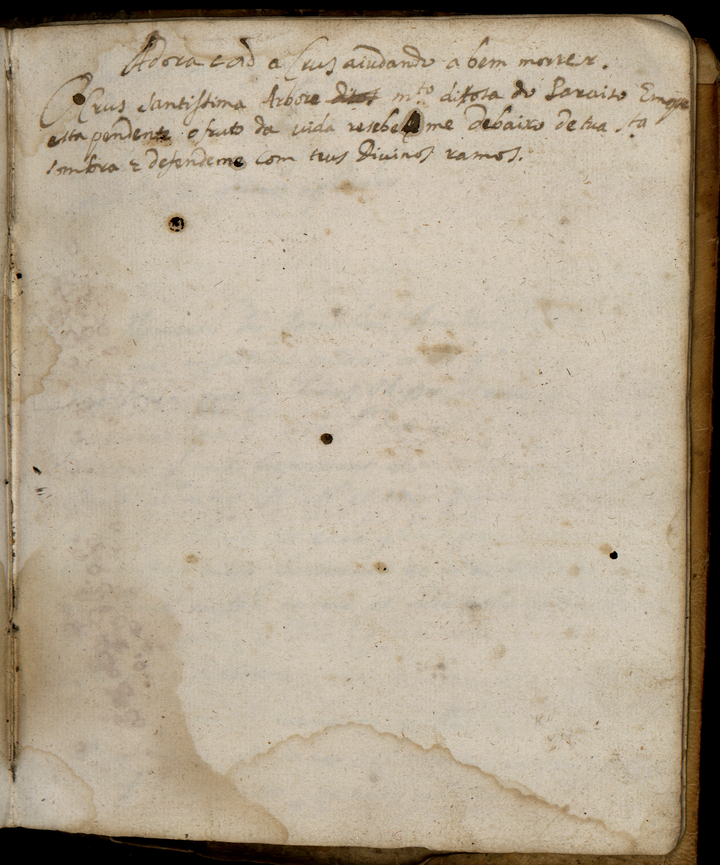 Adora cad a Crus aiudando a bem morrer.
O Crus santissima Arbore m.to ditosa do Paraiso Emque
esta pendente o fruto da vida resebe me debaixo de tua s.ta
sombra e defendeme com teus Divinos ramos.